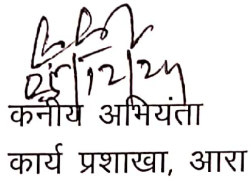 05/12/24
कनीय अभियंता
कार्य प्रशाखा, आरा